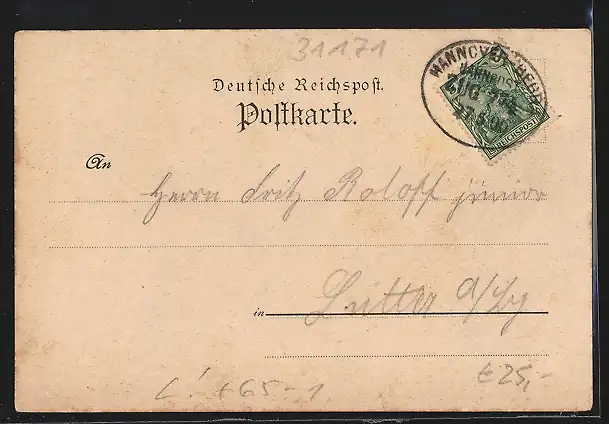 31171
Deutsche Reichspost.
Postkarte.
HANNOVER
ZUG
REICHSPOST
An
Herrn Fritz Roloff junior
in Lutter a/Bg
L! +65-1
€25,-